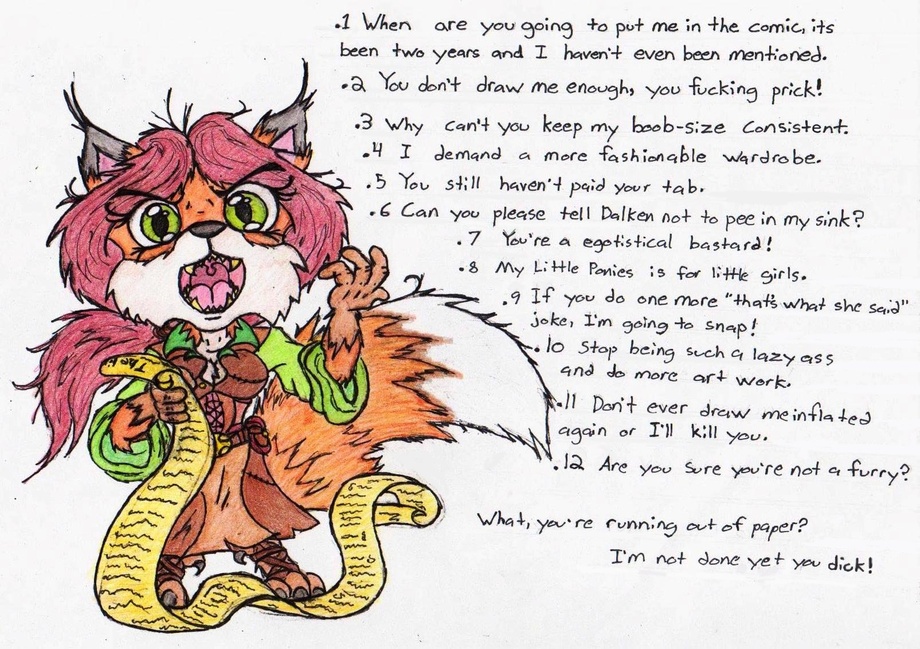 .1 When are you going to put me in the comic, its
been two years and I haven't even been mentioned.
.2 You don't draw me enough, you fucking prick!
.3 Why can't you keep my boob-size consistent.
.4 I demand a more fashionable wardrobe.
.5 You still haven't paid your tab.
.6 Can you please tell Dalken not to pee in my sink?
.7 You're a egotistical bastard!
.8 My Little Ponies is for little girls.
.9 If you do one more "that's what she said"
joke, I'm going to snap!
.10 Stop being such a lazy ass
and do more art work.
.11 Don't ever draw me inflated
again or I'll kill you.
.12 Are you sure you're not a furry?
What, you're running out of paper?
I'm not done yet you dick!